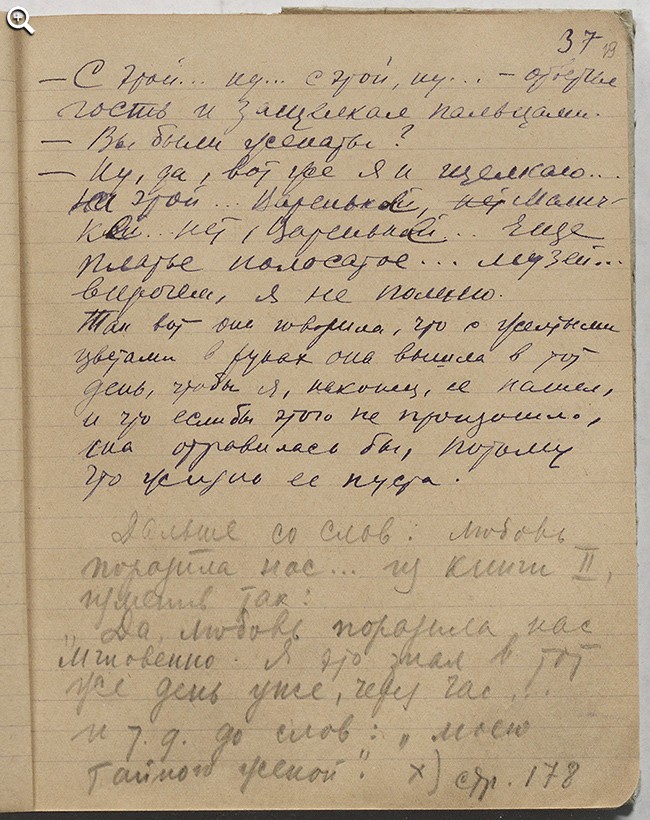 37
— С этой... ну... с этой, ну... — ответил
гость и защелкал пальцами.
— Вы были женаты?
— Ну, да, вот же я и щелкаю...
На этой... Вареньке, нет Манеч-
ке.. нет, Вареньке.. Еще
платье полосатое... музей...
впрочем, я не помню.
Так вот она говорила, что с желтыми
цветами в руках она вышла в тот
день, чтобы я, наконец, ее нашел,
и что если бы этого не произошло,
она отравилась бы, потому
что жизнь ее пуста.
Дальше со слов: любовь
поразила нас... из книги II,
изменив так:
„Да, любовь поразила нас
мгновенно. Я это знал в тот
же день уже, через час...
и т.д. до слов: „моею
тайною женой". x) стр. 178